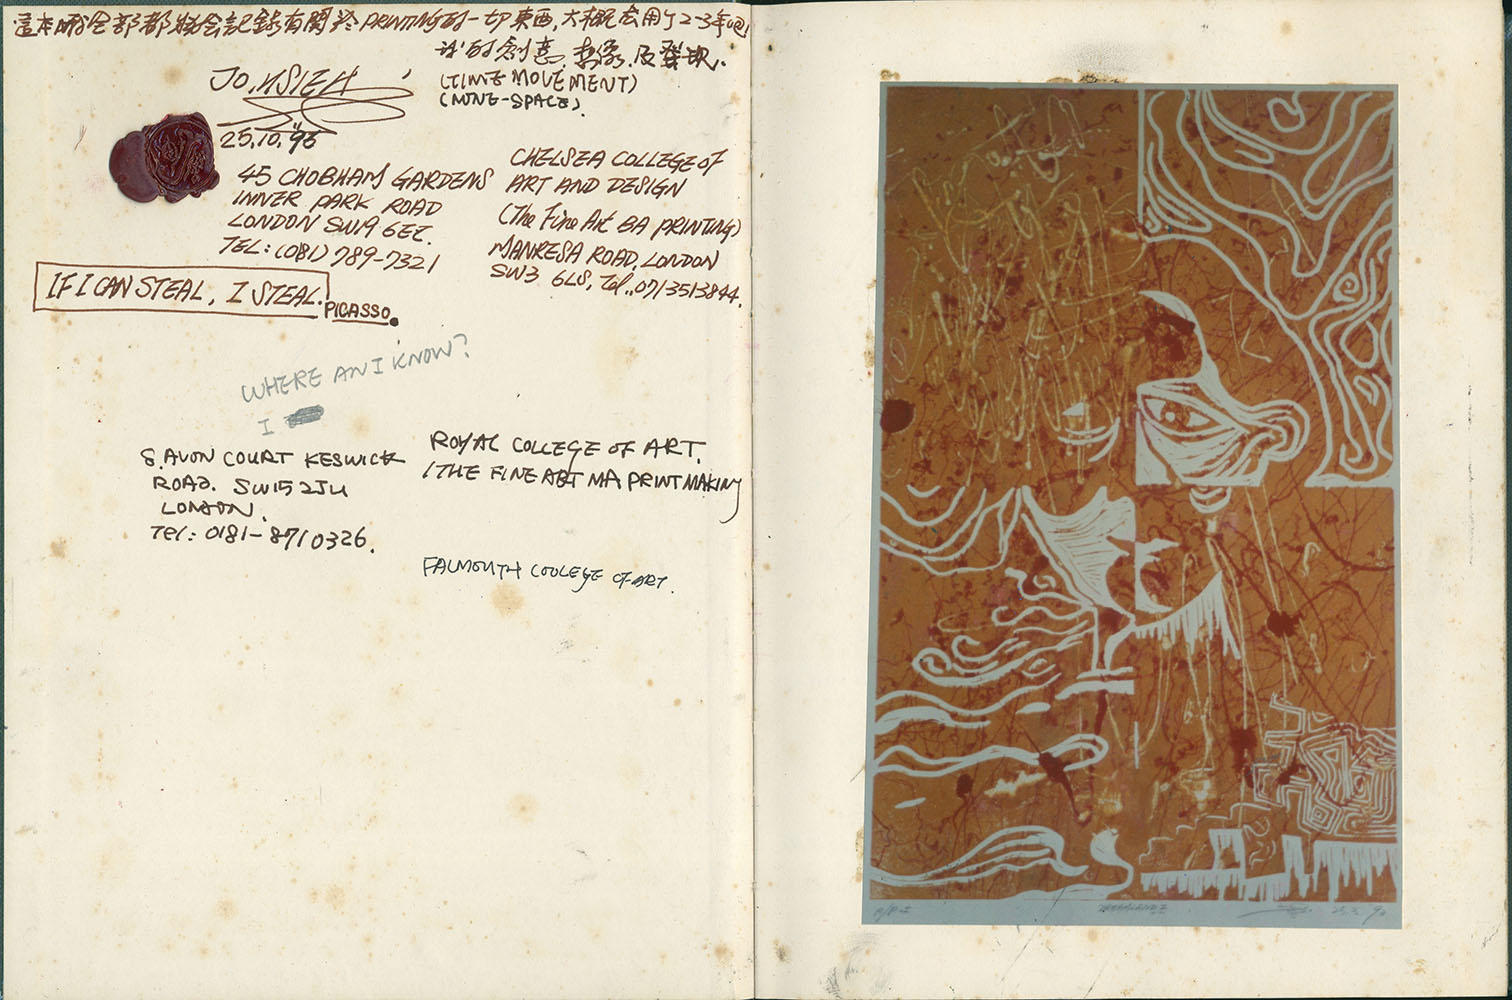 這本冊全部都將會記錄有關於PRINTING的一切東西,大概会用了2-3年吧!
我的創意,想像,及發現.
(TIME MOVEMENT)
(NINE-SPACE).
JO.HSIEH
25.10.'95
45 CHOBHAM GARDENS
INNER PARK ROAD
LONDON SW19
TEL: (081) 789-7321
CHELSEA COLLEGE of
ART AND DESIGN
(The Fine Art BA PRINTING)
MANRESA ROAD, LONDON
SW3 6LS, Tel..0713513844.
IF I CAN STEAL, I STEAL.
PICASSO.
WHERE AN I KNOW?
I
8.AVON COURT KESWICK
ROAD. SW15 2JU
LONDON.
Tel: 0181-8710326.
ROYAL COLLEGE OF ART.
(THE FINE ART MA PRINTMAKING
FALMOUTH COOLEGE OF ART.